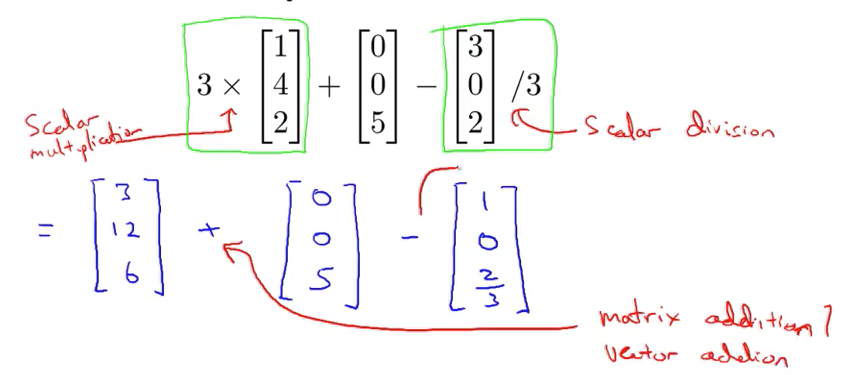 3 × [1 4 2] + [0 0 5] − [3 0 2] /3
Scalar
multiplication
Scalar division
= [3 12 6] + [0 0 5] - [1 0 2/3]
matrix addition /
vector addition